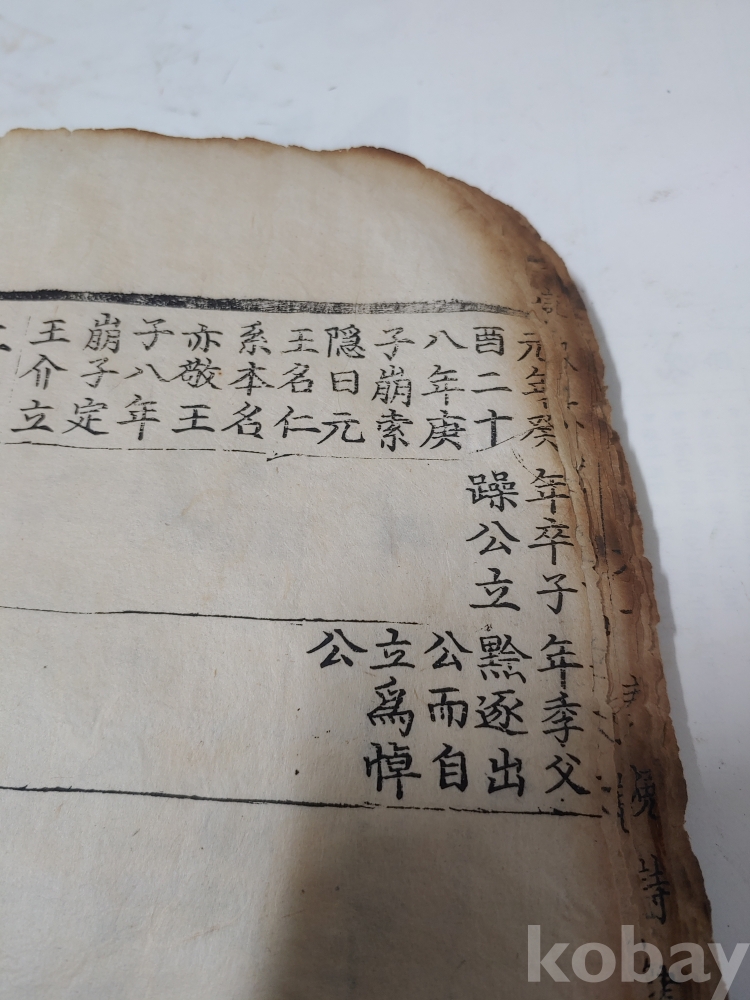 元年癸
酉二十
八年庚
子崩索
隠曰元
王名仁
系本名
亦敬王
子八年
崩子定
王介立
年卒子
躁公立
年季父
黔逐出
公而自
立爲悼
公
kobay